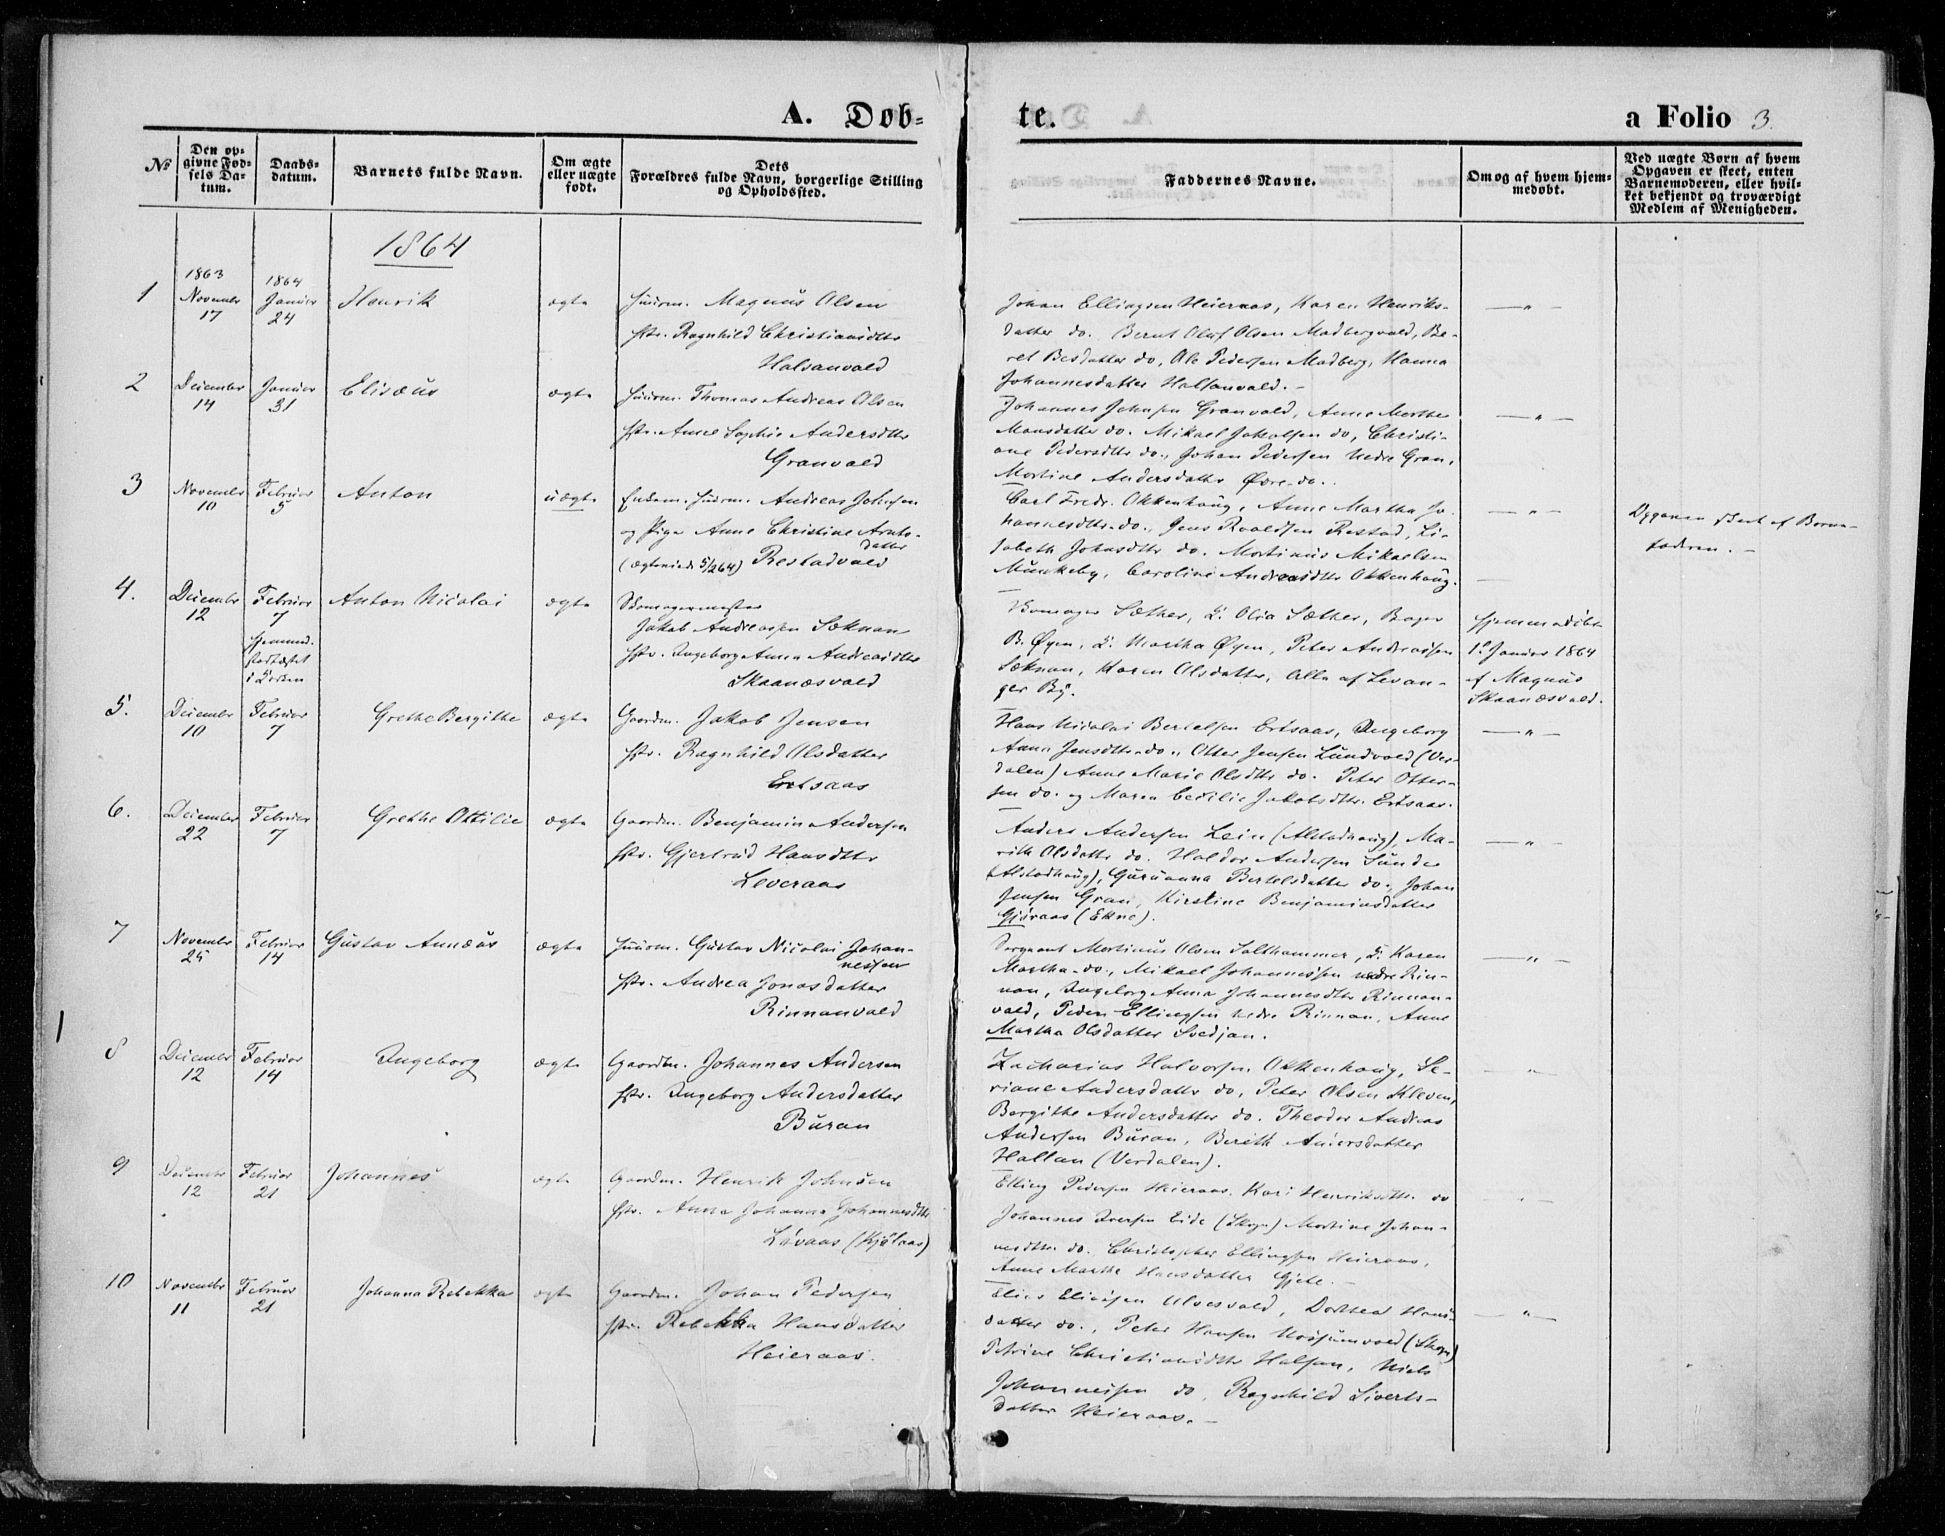 A. Døb=
te.
a Folio 3.
№
Den op-
givne Fød-
sels Da-
tum.
Daabs-
datum.
Barnets fulde Navn.
Om ægte
eller uægte
født.
Dets
Forældres fulde Navn, borgerlige Stilling
og Opholdssted.
Faddernes Navne.
Om og af hvem hjem-
medøbt.
Ved uægte Børn af hvem
Opgaven er skeet, enten
Barnemoderen, eller hvil-
ket bekjendt og troværdigt
Medlem af Menigheden.
1864
1
1863
Novembr
17
1864
Januar
24
Henrik
ægte
Huusm. Magnus Olsen
Hstr. Ragnhild Christiansdtr
Halsanvald
Johan Ellingsen Heieraas, Karen Henriks-
datter do. Bernt Oluf Olsen Madbergvald, Be-
ret Besdatter do, Ole Pedersen Madberg, Hanna
Johannesdatter Halsanvald. -
— „ —
2
Decembr
14
Januar
31
Elisæus
ægte
Huusm. Thomas Andreas Olsen
Hstr. Anne Sophie Andersdtr
Granvald
Johannes Johnsen Granvald, Anne Marthe
Monsdatter do. Mikael Jakobsen do, Christi-
ane Pedersdtr do., Johan Pedersen Nedre Gran,
Mortine Andersdatter Øvre do.
— „ —
3
Novembr
10
Februar
5
Anton
uægte
Enkem. Huusm. Andreas Johnsen
og Pige Anne Christine Arnts-
datter
(ægteviede 5/2 64) Restadvald
Carl Fredr. Okkenhaug, Anne Martha Jo-
hannesdtr. do., Jens Roaldsen Restad, Li-
sabeth Johnsdtr do. Mortinus Mikaelsen
Munkeby, Caroline Andreasdtr Okkenhaug.
— „ —
Opgaven skeet af Barne-
faderen. -
4.
Decembr
12
Februar
7
Hjemmed.
stadfæstet
i Kirken
Anton Nicolai
ægte
Skomagermester
Jakob Andreassen Sæknan
Hstr. Ingeborg Anna Andreasdtr
Skaanæsvald
Skomager Sæther, K. Olia Sæther, Bager
B. Øyen, K. Martha Øyen, Peter Andreassen
Sæknan, Karen Olsdatter, Alle af Levan-
ger By.
Hjemmedøbt
1. Januar 1864
af Magnus
Skaanæsvald.
5.
Decembr
10
Februar
7
Grethe Bergithe
ægte
Gaardm. Jakob Jensen
Hstr. Ragnhild Olsdatter
Ertsaas
Hans Nicolai Bertelsen Ertsaas, Ingeborg
Anna Jensdtr do., Otter Jensen Lundvald (Ver-
dalen) Anne Marie Olsdtr do. Peter Otter-
sen do. og Maren Cecilie Jakobsdtr. Ertsaas.
— „ —
6.
Decembr
22
Februar
7
Grethe Ottilie
ægte
Gaardm. Benjamin Andersen
Hstr. Gjertrud Hansdtr
Leveraas
Anders Andersen Lein (Alstadhaug), Ma-
rith Olsdatter do. Haldor Andersen Sunde
(Alstadhaug), Guruanna Bertelsdatter do., Johan
Jensen Gran, Kirstine Benjaminsdatter
Gjøraas (Ekne).
— „ —
7
Novembr
25
Februar
14
Gustav Annæus
ægte
Huusm. Gustav Nicolai Johan-
nessen
Hstr. Andrea Jonasdatter
Rinnanvald
Sergeant Mortinus Olsen Salthammer, K. Karen
Martha do., Mikael Johannessen nedre Rin-
nan, Ingeborg Anna Johannesdtr Rinnan-
vald, Peder Ellingsen nedre Rinnan, Anne
Martha Olsdatter Svedjan.
— „ —
8
Decembr
12
Februar
14
Ingeborg
ægte
Gaardm. Johannes Andersen
Hstr. Ingeborg Andersdatter
Buran
Zacharias Halvorsen Okkenhaug, Se-
riane Andersdatter do, Peter Olsen Kleven,
Bergithe Andersdatter do. Theodor Andreas
Andersen Buran, Bereth Andersdatter
Hallan (Verdalen).
— „ —
9
Decembr
12
Februar
21
Johannes
ægte
Gaardm. Henrik Johnsen
Hstr. Anna Johanna Johannesdtr
Levaas (Kjølaas)
Elling Pedersen Heieraas. Kari Henriksdtr. do
Johannes Iversen Eide (Skogn) Martine Johan-
nesdtr. do. Christopher Ellingsen Heieraas,
Anne Marthe Hansdatter Gjete. -
— „ —
10
Novembr
11
Februar
21
Johanna Rebekka
ægte
Gaardm. Johan Pedersen
Hstr. Rebekka Hansdatter
Heieraas.
Elias Eliasen Ulvesvald, Dorthea Hans-
datter do., Peter Hansen Nossumvald (Skogn)
Petrine Christiansdtr Halsan, Niels
Johannesen do, Ragnhild Siverts-
datter Heieraas. -
— „ —